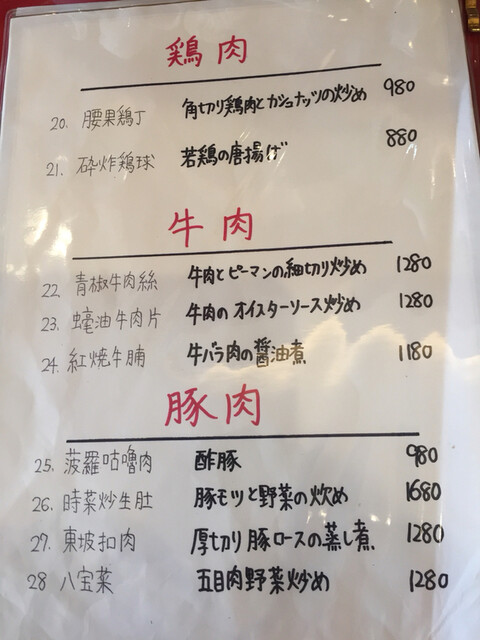 鶏肉
20. 腰果鶏丁 角切り鶏肉とガシュナッツの炒め 980
21. 砕炸鶏球 若鶏の唐揚げ 880
牛肉
22. 青椒牛肉絲 牛肉とピーマンの細切り炒め 1280
23. 蠔油牛肉片 牛肉のオイスターソース炒め 1280
24. 紅焼牛腩 牛バラ肉の醤油煮 1180
豚肉
25. 菠羅咕嚕肉 酢豚 980
26. 時菜炒生肚 豚モツと野菜の炒め 1680
27. 東坡扣肉 厚切り豚ロースの蒸し煮 1280
28 八宝菜 五目肉野菜炒め 1280